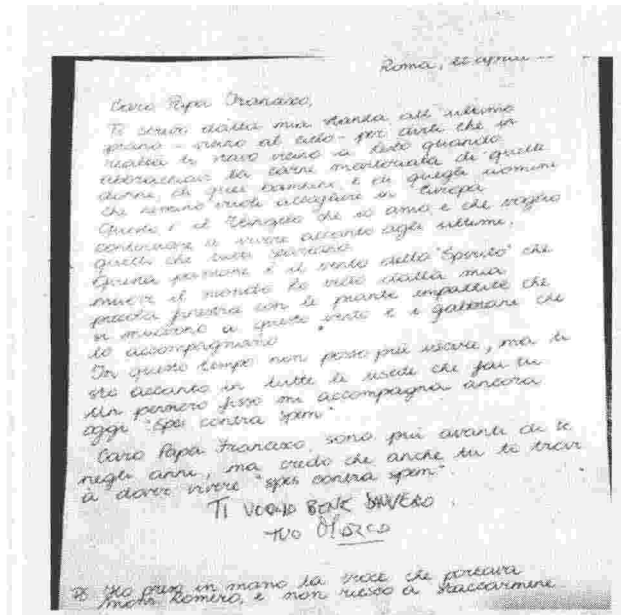 Roma, 22 aprile
Caro Papa Francesco,
Ti scrivo dalla mia stanza all'ultimo
piano - vicino al cielo - per dirti che in
realtà ti stavo vicino a Lesbo quando
abbracciavi la carne martoriata di quelle
donne, di quei bambini, e di quegli uomini
che nessuno vuole accogliere in Europa
Questo è il Vangelo che io amo e che voglio
continuare a vivere accanto agli ultimi,
quelli che tutti scartano.
Questa passione è il vento dello "Spirito" che
muove il mondo lo vedo dalla mia
piccola finestra con le piante impazzite che
si muovono a questo vento e i gabbiani che
lo accompagnano.
In questo tempo non posso più uscire, ma ti
sto accanto in tutte le uscite che fai tu
Un pensiero fisso mi accompagna ancora
oggi "spes contra spem"
Caro Papa Francesco, sono più avanti di te
negli anni, ma credo che anche tu ti trovi
a dover vivere "spes contra spem".
TI VOGLIO BENE DAVVERO
TUO Marco
PS Ho preso in mano la croce che portava
mons. Romero, e non riesco a staccarmene